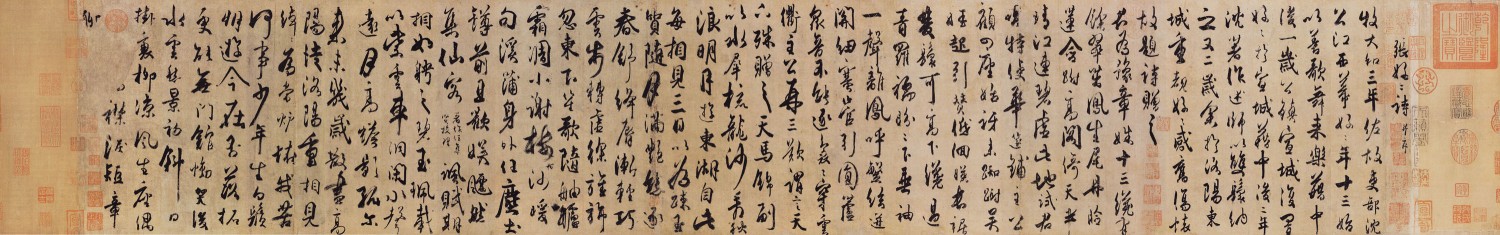 張好好詩并序
牧大和三年佐故吏部沈
公江西幕好好年十三始
以善歌舞來樂籍中
後一歲公鎮宣城復置
好好於宣城籍中後二年
沈著作述師以雙鬟納
之又二歲余於洛陽東
城重覩好好感舊傷懷
故題詩贈之
君為豫章姝十三纔有
餘翠茁鳳生尾丹臉
蓮含跗高閣倚天半
晴江連碧虛此地試君
唱特使華筵鋪主公
顧四座始訝來踟蹰吳
娃起引贊低佪映長裾
雙鬟可高下纔過
青羅襦盼盼下垂袖
一聲離鳳呼繁絃迸
關紐塞管引圓蘆
衆音不能逐裊裊穿雲
衢主公再三歎謂言天
下殊贈之天馬錦副
以水犀梳龍沙看秋
浪明月遊東湖自此
每相見三日以為疎玉
質隨月滿艷態逐
春舒絳脣漸輕巧
雲步轉虛徐旌旆
忽東下笙歌隨舳艫
霜凋小謝樹沙暖
句溪蒲身外任塵土
罇前且歡娛飄然
集仙客著作嘗任集賢校理諷賦期
相如聘之碧玉珮載
以紫雲車洞閉水聲
遠月高蟾影孤爾
來未幾歲散盡高
陽徒洛陽重相見
綽綽為當爐怪我苦
何事少年生白鬚
朋遊今在否落拓
更能無門館慟哭後
水雲愁景初斜日
掛衰柳涼風生座隅
襟淚短章
聊